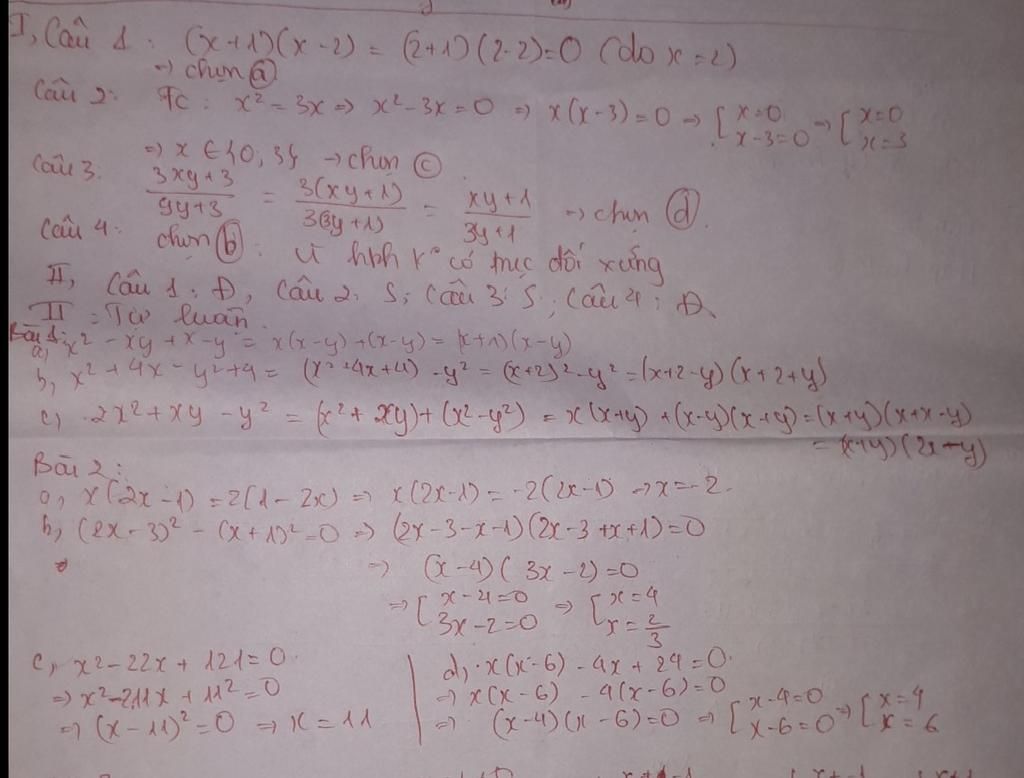 I, Câu 1: (x+1)(x-2) = (2+1)(2-2)=0 (do x=2)
=> chọn ⓐ
Câu 2: Tc: x² = 3x => x² - 3x = 0 => x(x-3) = 0 => [x=0; x-3=0 => [x=0; x=3
=> x ∈ {0; 3} → chọn ⓒ
Câu 3: (3xy+3)/(9y+3) = 3(xy+1)/3(3y+1) = (xy+1)/(3y+1) => chọn ⓓ.
Câu 4: chọn ⓑ: Vì hbh k° có trục đối xứng
II, Câu 1: Đ, Câu 2: S; Câu 3: S; Câu 4: Đ
II: Tự luận.
Bài 1:
a, x² - xy + x - y = x(x-y) + (x-y) = (x+1)(x-y)
b, x² + 4x - y² + 4 = (x² + 4x + 4) - y² = (x+2)² - y² = (x+2-y)(x+2+y)
c, 2x² + xy - y² = (x² + xy) + (x² - y²) = x(x+y) + (x-y)(x+y) = (x+y)(x+x-y)
= (x+y)(2x-y)
Bài 2:
a, x(2x-1) = 2(1-2x) => x(2x-1) = -2(2x-1) → x = -2.
b, (2x-3)² - (x+1)² = 0 => (2x-3-x-1)(2x-3+x+1) = 0
=> (x-4)(3x-2) = 0
=> [x-4=0; 3x-2=0 => [x=4; x=2/3
c, x² - 22x + 121 = 0
=> x² - 2.11x + 11² = 0
=> (x-11)² = 0 => x = 11
d, x(x-6) - 4x + 24 = 0.
=> x(x-6) - 4(x-6) = 0
=> (x-4)(x-6) = 0 => [x-4=0; x-6=0 => [x=4; x=6